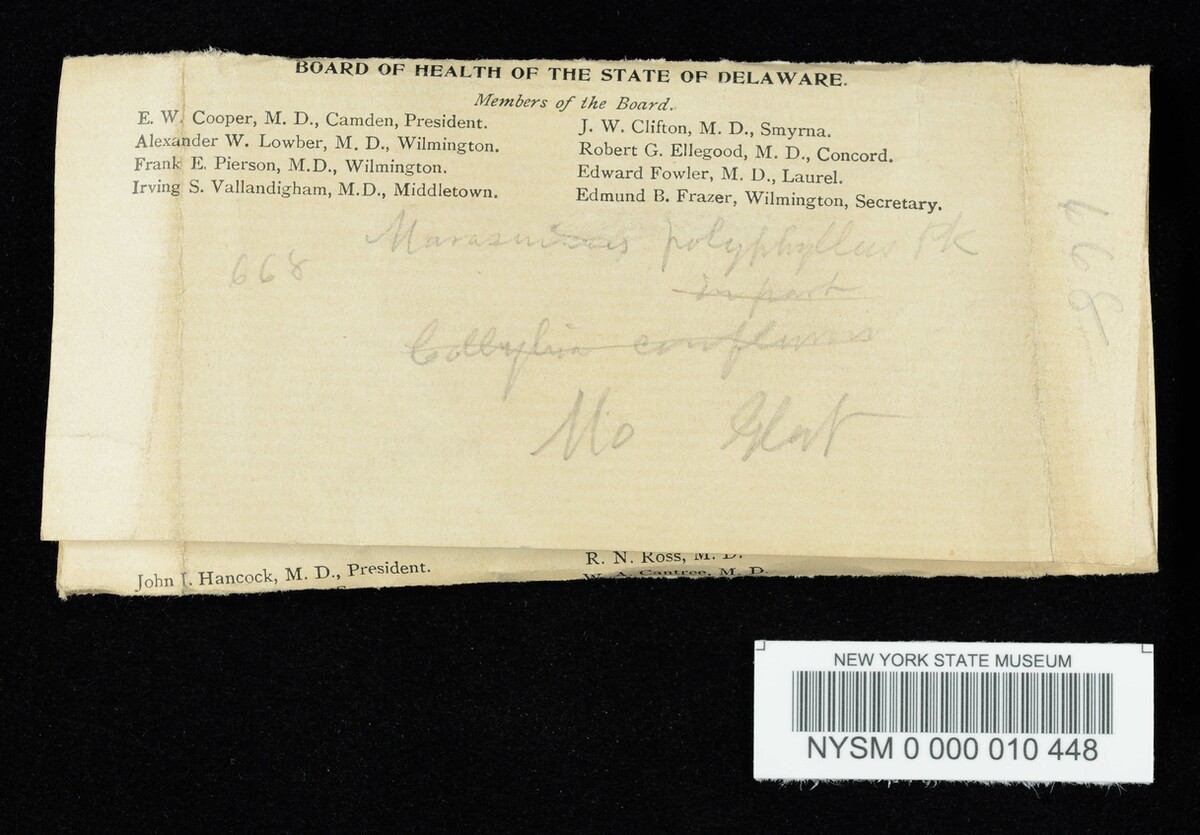 BOARD OF HEALTH OF THE STATE OF DELAWARE.
Members of the Board.
E. W. Cooper, M. D., Camden, President.
Alexander W. Lowber, M. D., Wilmington.
Frank E. Pierson, M.D., Wilmington.
Irving S. Vallandigham, M.D., Middletown.
J. W. Clifton, M. D., Smyrna.
Robert G. Ellegood, M. D., Concord.
Edward Fowler, M. D., Laurel.
Edmund B. Frazer, Wilmington, Secretary.
polyphyllus Pk
668
in part
Collybia
Mo Glat
668
John J. Hancock, M. D., President.
R. N. Ross, M. D.
W. A. Cantree, M. D.
NEW YORK STATE MUSEUM
NYSM 0 000 010 448